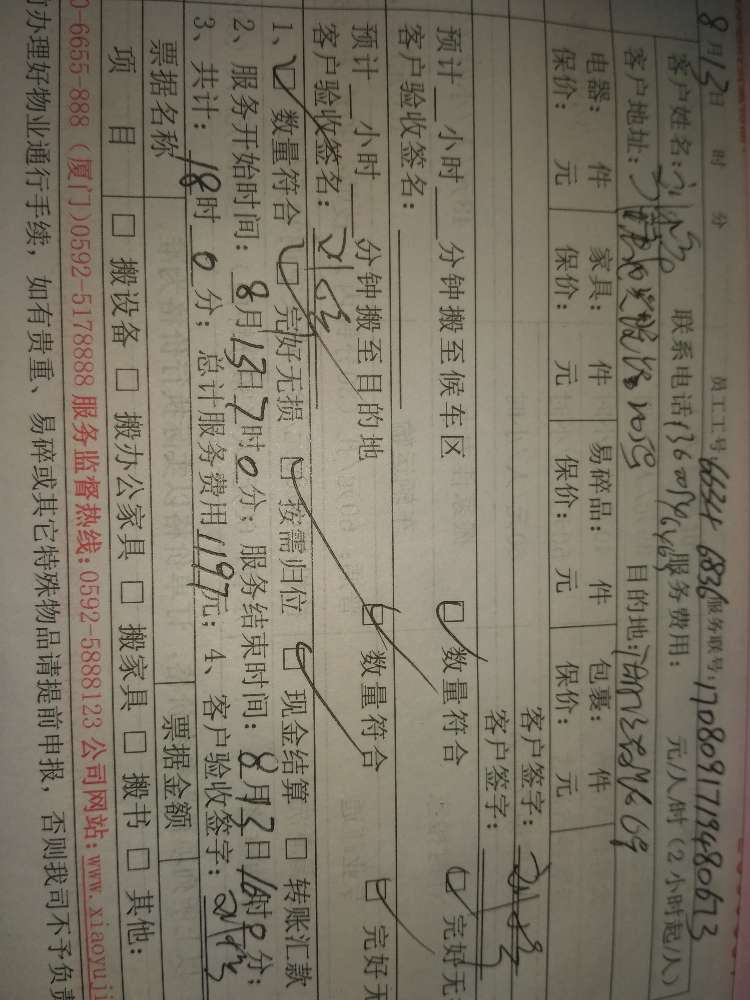 8月13日 时 分 员工工号 6634 6836 服务联号: 170809171948067З
客户姓名: 联系电话 服务费用: 元/人/时（2小时起/人）
客户地址: 目的地:
电器: 件 家具: 件 易碎品: 件 包裹: 件 客户签字:
保价: 元 保价: 元 保价: 元 保价: 元 客户签字:
预计 小时 分钟搬至候车区 数量符合 完好无
客户验收签名:
预计 小时 分钟搬至目的地 数量符合 完好无
客户验收签名:
1、 数量符合 完好无损 按需归位 现金结算 转账汇款
2、服务开始时间: 8月13日7时0分; 服务结束时间: 8月13日16时0分;
3、共计: 18时0分; 总计服务费用1197元; 4、客户验收签字:
票据名称 票据金额
项 目 搬设备 搬办公家具 搬家具 搬书 其他:
0-6655-888（厦门)0592-5178888 服务监督热线:0592-5888123 公司网站:www.xiaoyuji
办理好物业通行手续, 如有贵重、易碎或其它特殊物品请提前申报, 否则我司不予负责